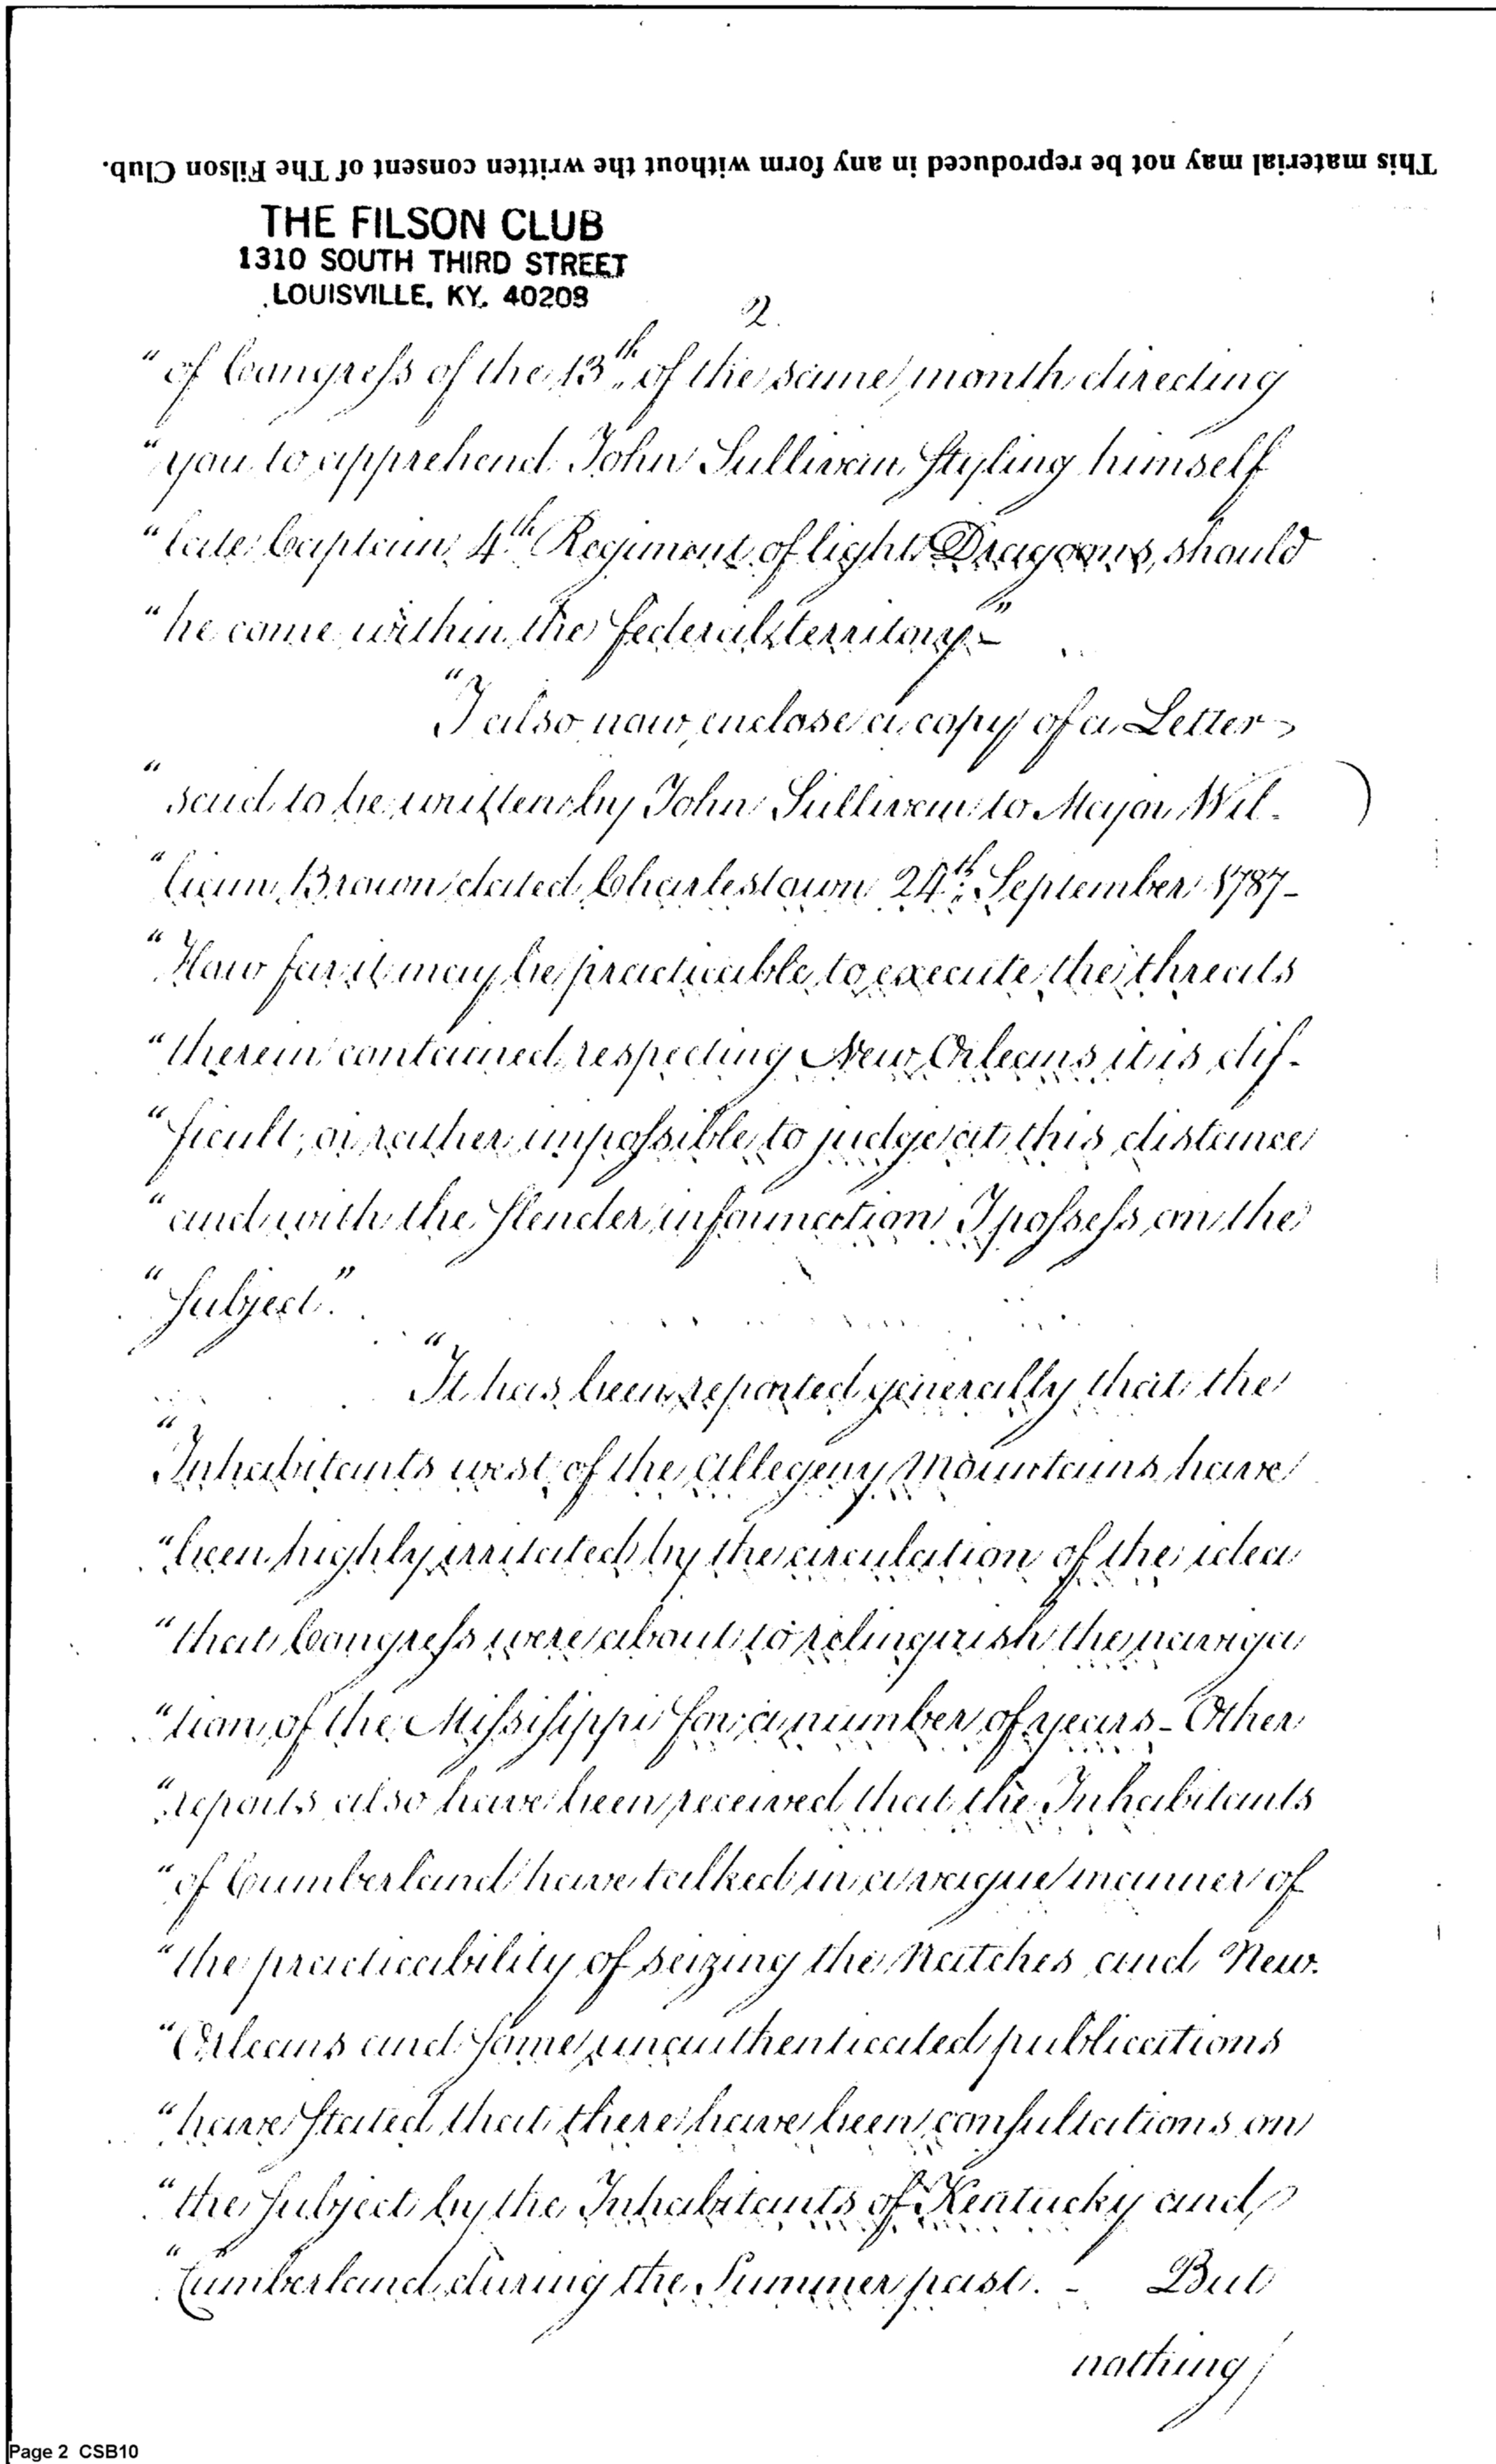 This material may not be reproduced in any form without the written consent of The Filson Club.
THE FILSON CLUB
1310 SOUTH THIRD STREET
LOUISVILLE, KY. 40208
2.
"of Congress of the 13th of the same month directing
"you to apprehend John Sullivan Styling himself
"late Captain 4th Regiment of light Dragoons, should
"he come within the federal territory"-
"I also now enclose a copy of a Letter
"said to be written by John Sullivan to Major Wil-
"liam Brown dated Charlestown 24th September 1787-
"How far it may be practicable to execute the threats
"therein contained respecting New Orleans it is dif-
"ficult, or rather impossible to judge at this distance
"and with the Slender information I possess on the
"Subject."
"It has been reported generally that the
"Inhabitants west of the Allegeny Mountains have
"been highly irritated by the circulation of the idea
"that Congress were about to relinquish the naviga
"tion of the Missisippi for a number of years - Other
"reports also have been received that the Inhabitants
"of Cumberland have talked in a vague manner of
"the practicability of seizing the Natches and New.
"Orleans and some unauthenticated publications
"have Stated that there have been consultations on
"the Subject by the Inhabitants of Kentucky and
"Cumberland during the Summer past. - But
nothing
Page 2 CSB10